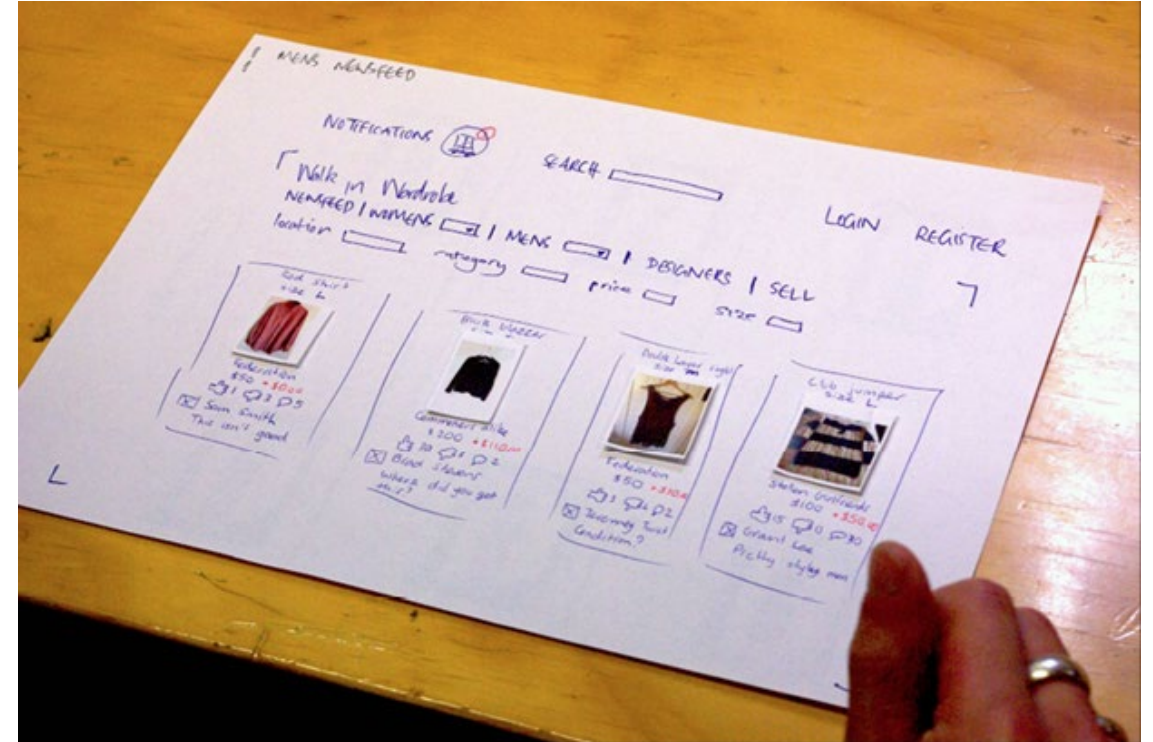 MENS NEWSFEED
NOTIFICATIONS
SEARCH
LOGIN REGISTER
Walk in Wardrobe
NEWSFEED | WOMENS | MENS | DESIGNERS | SELL
location category price size
Red shirt
size L
Federation
$50
1 2 5
Sam Smith
This isn't good
Black blazer
size
$200
20 2
Brad Stevens
Where did you get
this?
Double Layer
size
Federation
$50
3 2
Condition?
jumper
size L
Stolen Girlfriends
$100 +$50.00
15 0 30
Grant Lee
style man